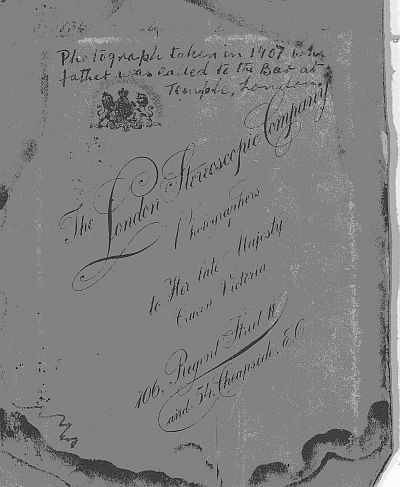 Photograph taken in 1907 when
father was called to the Bar at
Temple, London
The London Stereoscopic Company
Photographers
to Her late Majesty
Queen Victoria
106, Regent Street W
and 54, Cheapside, E.C.